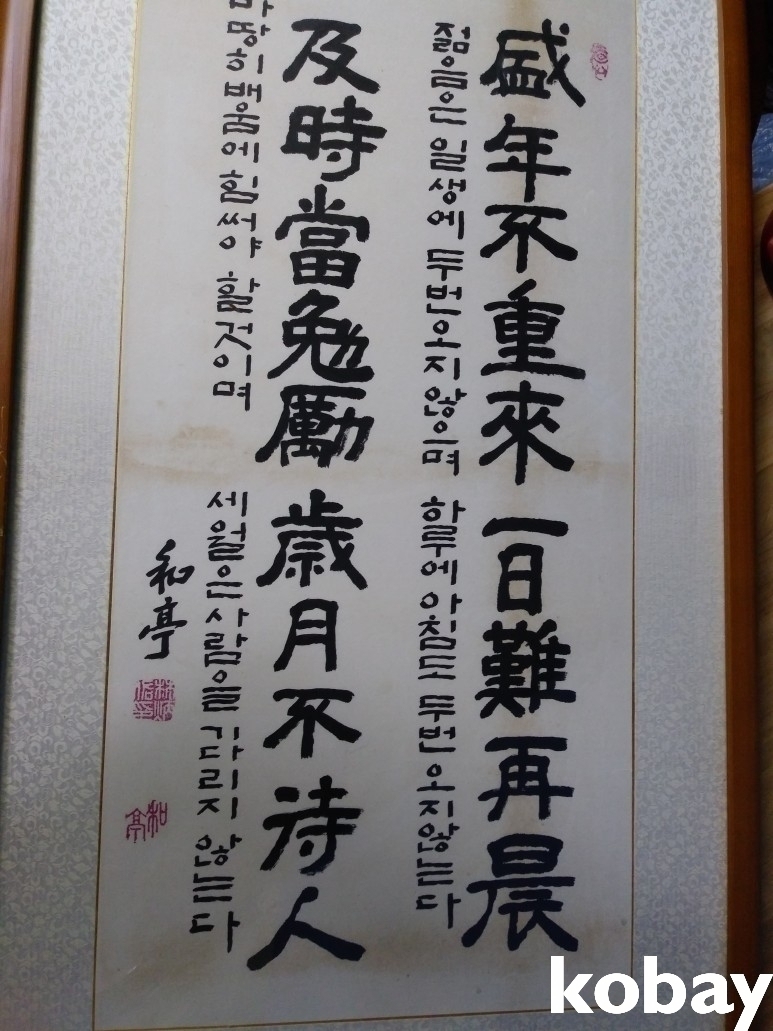 盛年不重來一日難再晨
젊음은 일생에 두번오지않으며 하루에아침도 두번 오지않는다
及時當勉勵歲月不待人
마땅히배움에힘써야 할것이며 세월은사람을 기다리지 않는다
和亭
和亭
kobay